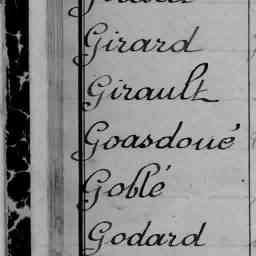 Girard
Girault
Goasdoué
Goblé
Godard